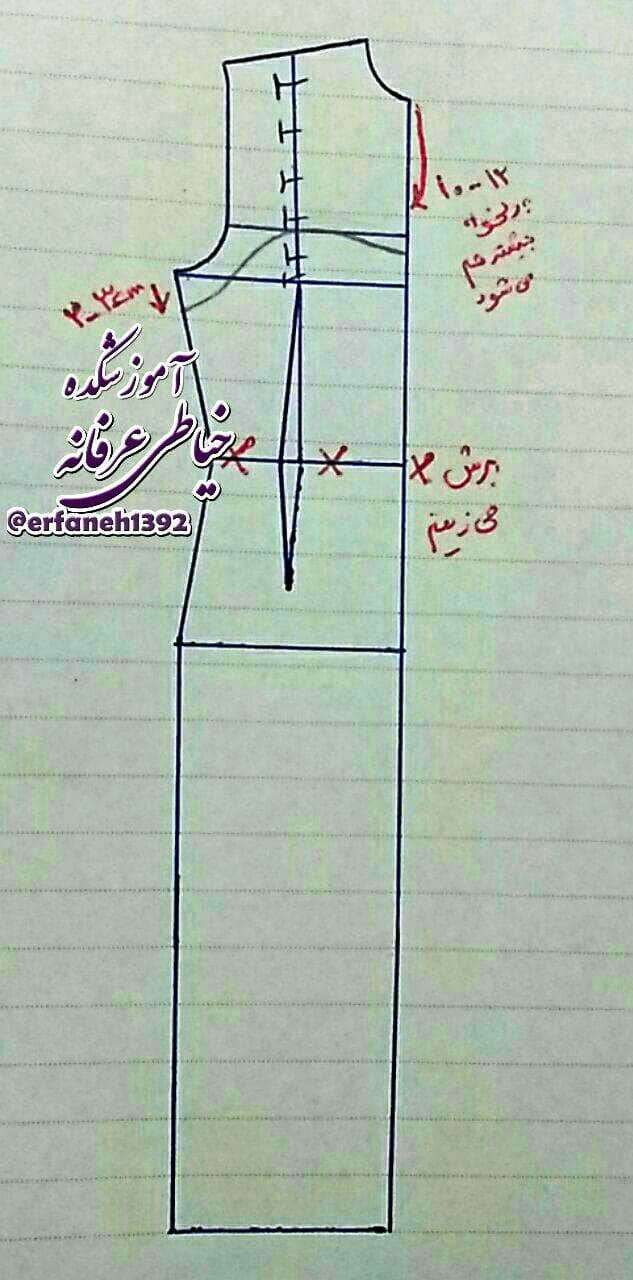 ۱۰-۱۲
بدلخواه
بیشتر هم
می شود
۳-۳٫۵cm
آموزشکده
خیاطی عرفانه
@erfaneh1392
برش
می زنیم